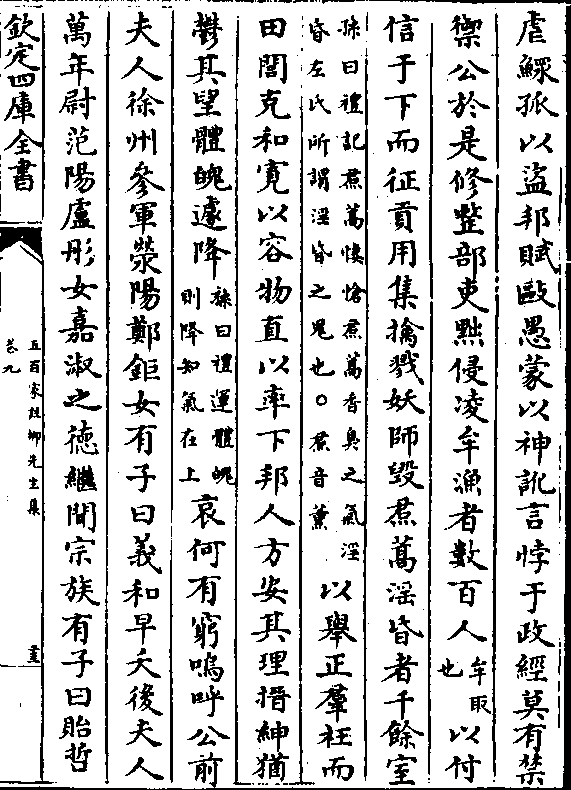 虐鰥孤以盜邦賦毆愚蒙以神訛言悖于政經莫有禁
禦公於是修整部吏黜侵凌牟漁者數百人牟取也以付
信于下而征貢用集擒戮妖師毀焄蒿淫昏者千餘室
孫曰禮記焄蒿悽愴焄蒿香臭之氣淫
昏左氏所謂淫昏之鬼也○焄音薰
以舉正羣枉而
田閭克和寛以容物直以率下邦人方安其理搢紳猶
鬱其望體魄遽降孫曰禮運體魄則降知氣在上哀何有窮嗚呼公前
夫人徐州參軍滎陽鄭鉅女有子曰義和早夭後夫人
萬年尉范陽盧彤女嘉淑之德繼聞宗族有子曰貽哲
欽定四庫全書
五百家註柳先生集
卷九